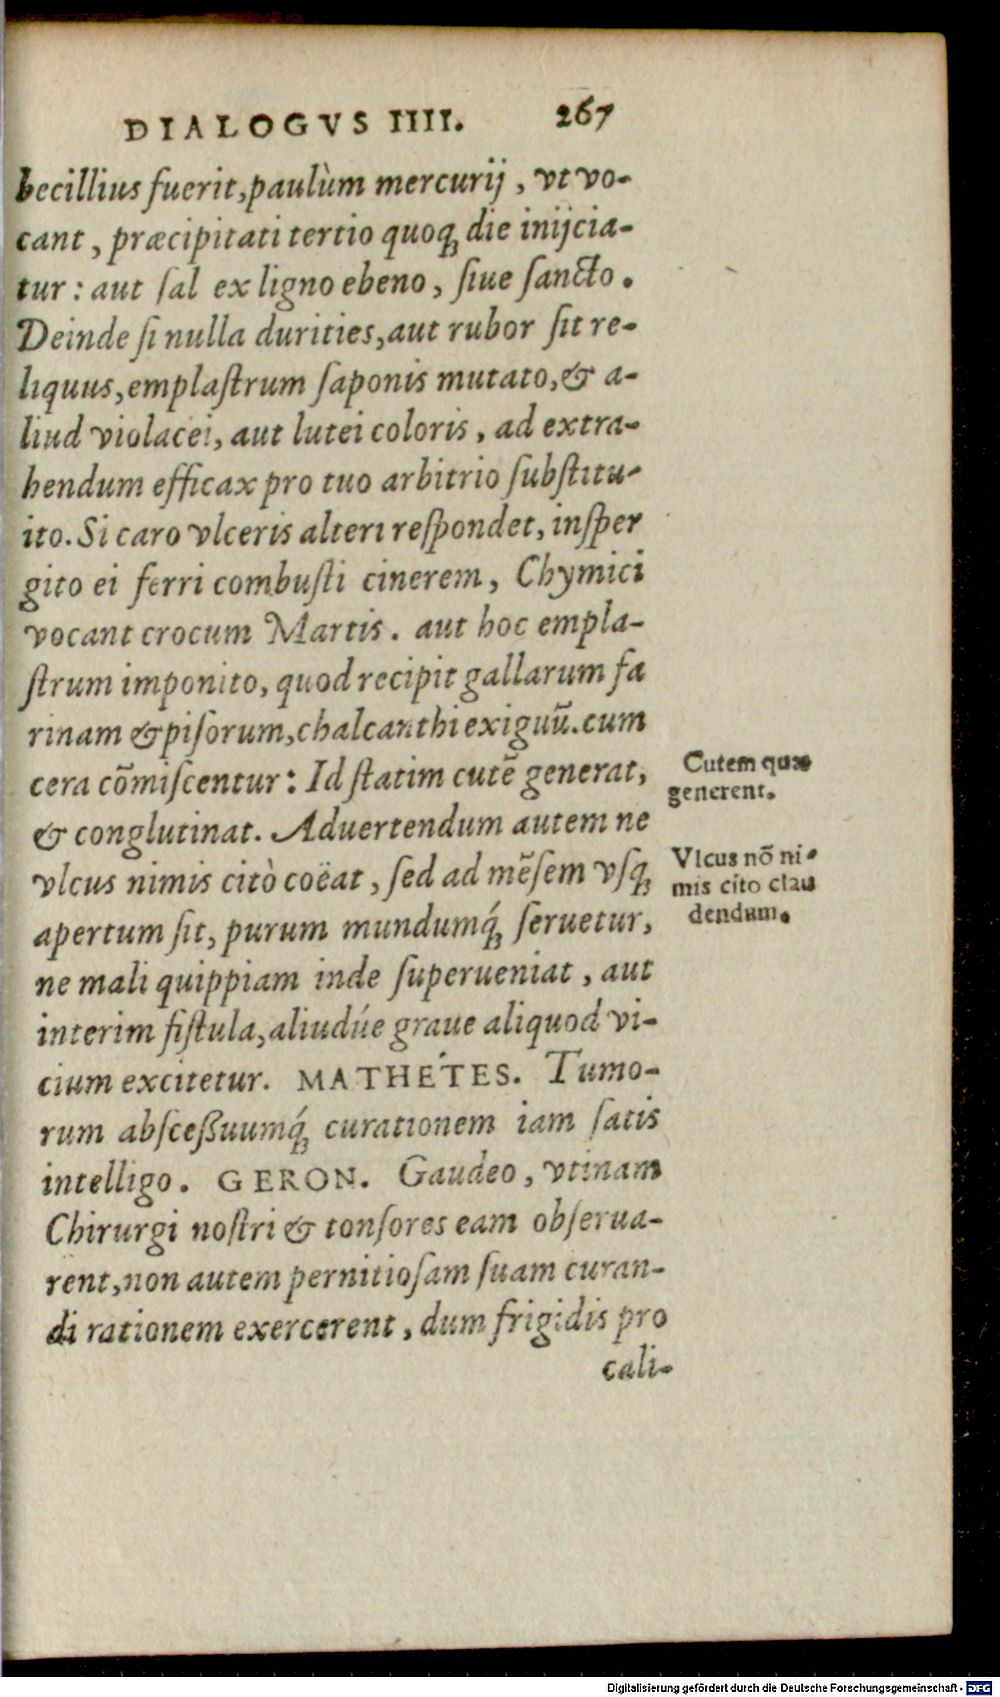 DIALOGVS IIII. 267
becillius fuerit, paulùm mercurij, vt vo-
cant, præcipitati tertio quoqꝫ die inijcia-
tur: aut ſal ex ligno ebeno, ſiue ſancto.
Deinde ſi nulla durities, aut rubor ſit re-
liquus, emplaſtrum ſaponis mutato, & a-
liud violacei, aut lutei coloris, ad extra-
hendum efficax pro tuo arbitrio ſubſtitu-
ito. Si caro vlceris alteri reſpondet, inſper
gito ei ferri combuſti cinerem, Chymici
vocant crocum Martis. aut hoc empla-
ſtrum imponito, quod recipit gallarum fa
rinam & piſorum, chalcanthi exiguũ. cum
cera cõmiſcentur: Id ſtatim cutẽ generat,
& conglutinat. Aduertendum autem ne
vlcus nimis citò coëat, ſed ad mẽſem vſqꝫ
apertum ſit, purum mundumq́ꝫ ſeruetur,
ne mali quippiam inde ſuperueniat, aut
interim fiſtula, aliudúe graue aliquod vi-
cium excitetur. MATHÉTES. Tumo-
rum abſceßuumq́ꝫ curationem iam ſatis
intelligo. GERON. Gaudeo, vtinam
Chirurgi noſtri & tonſores eam obſerua-
rent, non autem pernitioſam ſuam curan-
di rationem exercerent, dum frigidis pro
cali-
Cutem quæ
generent.
Vlcus nõ ni-
mis cito clau
dendum.
Digitalisierung gefördert durch die Deutsche Forschungsgemeinschaft - DFG